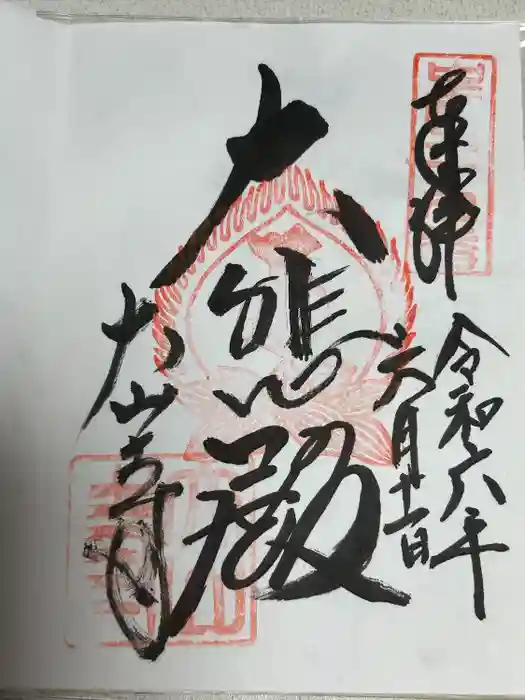 奉拝
令和六年
六月
大悲殿
大山寺